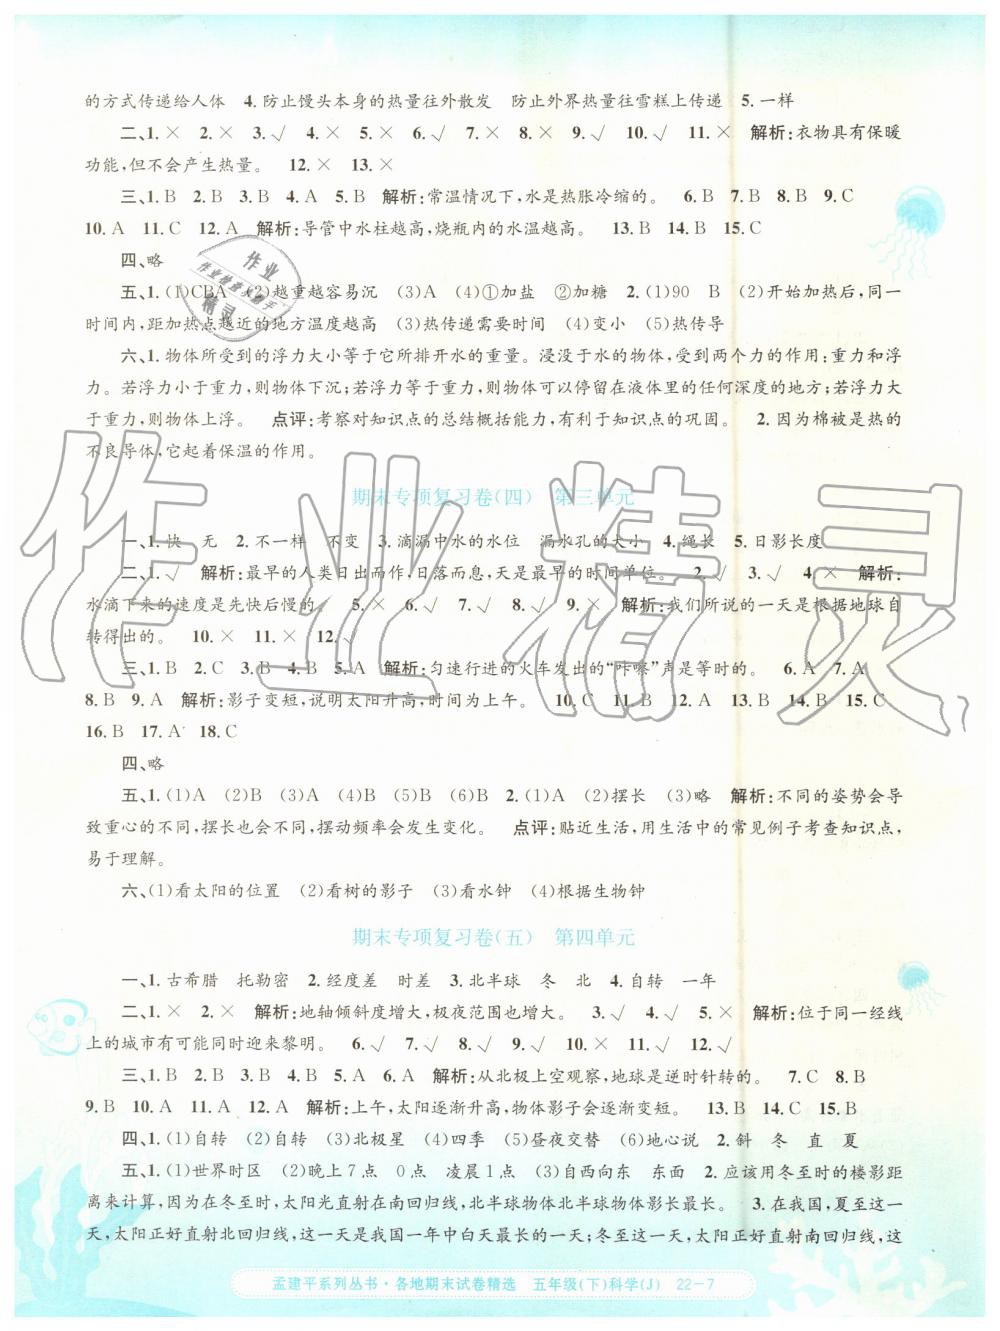 的方式传递给人体　4. 防止馒头本身的热量往外散发　防止外界热量往雪糕上传递　5. 一样
二、1. ×　2. ×　3. √　4. ×　5. ×　6. ×　7. √　8. ×　9. √　10. √　11. ×　解析:衣物具有保暖
功能,但不会产生热量。　12. ×　13. ×
三、1. B　2. B　3. B　4. A　5. B　解析:常温情况下,水是热胀冷缩的。　6. B　7. B　8. B　9. C
10. A　11. C　12. A　解析:导管中水柱越高,烧瓶内的水温越高。　13. B　14. B　15. C
四、略
五、1. (1)CBA　(2)越重越容易沉　(3)A　(4)①加盐　②加糖　2. (1)90　B　(2)开始加热后,同一
时间内,距加热点越近的地方温度越高　(3)热传递需要时间　(4)变小　(5)热传导
六、1. 物体所受到的浮力大小等于它所排开水的重量。浸没于水的物体,受到两个力的作用:重力和浮
力。若浮力小于重力,则物体下沉;若浮力等于重力,则物体可以停留在液体里的任何深度的地方;若浮力大
于重力,则物体上浮。　点评:考察对知识点的总结概括能力,有利于知识点的巩固。　2. 因为棉被是热的
不良导体,它起着保温的作用。
期末专项复习卷(四)　第三单元
一、1. 快　无　2. 不一样　不变　3. 滴漏中水的水位　漏水孔的大小　4. 绳长　5. 日影长度
二、1. √　解析:最早的人类日出而作,日落而息,天是最早的时间单位。　2. √　3. √　4. ×　解析:
水滴下来的速度是先快后慢的。　5. ×　6. √　7. √　8. √　9. ×　解析:我们所说的一天是根据地球自
转得出的。　10. ×　11. ×　12. √
三、1. B　2. C　3. B　4. B　5. A　解析:匀速行进的火车发出的“咔嚓”声是等时的。　6. A　7. A
8. B　9. A　解析:影子变短,说明太阳升高,时间为上午。　10. C　11. B　12. A　13. B　14. B　15. C
16. B　17. A　18. C
四、略
五、1. (1)A　(2)B　(3)A　(4)A　(5)B　2. (1)A　(2)摆长　(3)略　解析:不同的姿势会导
致重心的不同,摆长也会不同,摆动频率会发生变化。　点评:贴近生活,用生活中的常见例子考查知识点,
易于理解。
六、(1)看太阳的位置　(2)看树的影子　(3)看水钟　(4)根据生物钟
期末专项复习卷(五)　第四单元
一、1. 古希腊　托勒密　2. 经度差　时差　3. 北半球　冬　北　4. 自转　一年
二、1. ×　2. ×　解析:地轴倾斜度增大,极夜范围也增大。　3. √　4. √　5. ×　解析:位于同一经线
上的城市有可能同时迎来黎明。　6. √　7. √　8. √　9. √　10. ×　11. √　12. √
三、1. B　2. B　3. A　4. B　5. B　6. A　解析:从北极上空观察,地球是逆时针转的。　7. C　8. B
9. B　10. A　11. A　12. A　解析:上午,太阳逐渐升高,物体影子会逐渐变短。　13. B　14. C　15. B
四、1. (1)自转　(2)自转　(3)北极星　(4)四季　(5)昼夜交替　(6)地心说　2. 斜　冬　直　夏
五、1. (1)世界时区　(2)晚上7点　0点　凌晨1点　(3)自西向东　东面　2. 应该用冬至时的楼影距
离来计算,因为在冬至时,太阳光直射在南回归线,北半球物体北半球物体影长最长。　3. 在我国,夏至这一
天,太阳正好直射北回归线,这一天是我国一年中白天最长的一天;冬至这一天,太阳正好直射南回归线,这
孟建平系列丛书·各地期末试卷精选　五年级(下)科学(J)　22-7
作业精灵